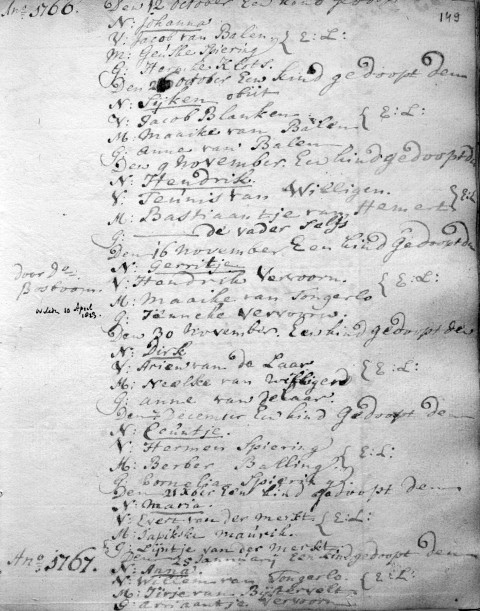 149
Ano 1766.
Den 12 october Een kind gedoopt
N: Johanna
V: Jacob van Balen } E: L:
M: Geuske Spiering
G:
Den october Een kind gedoopt dem
N: Sijken obiit
V: Jacob Blanken } E: L:
M: Maaike van Balen
G: anne van Balen
Den 9 November. Een kind gedoopt
N: Hendrik.
V: Teunis van Willigen. } E: L
M: Bastiaantje van Hemert
G: de vader selfs
Den 16 November Een kind Gedoopt
door De
Bostoom.
N: Gerritje
V: Hendrik Vervoorn. } E: L:
M: Maaike van Tongerlo
10 April
G: Jenneke Vervoorn.
Den 30 November. Een kind gedoopt dem
N: Dirk
V: Arien van de Laar } E: L:
M: Neeltke van Willigen
G: anne van de Laar.
Den December Een kind Gedoopt dem
N:
V: Hermen Spiering } E: L:
M: Berber Balling
G: Cornelia Spiering
Dem 21 xber Een kind gedoopt dem
N: Maria.
V: Evert van der Merkt } E: L:
M: Maurik.
G: Lijntje van der Merkt
Ano 1767.
Den 25 Januarij Een kind gedoopt dem
N: Anna
V: Willem van Tongerlo } E: L:
M: van Bijstervelt
G: Arriaantje Vervoorn